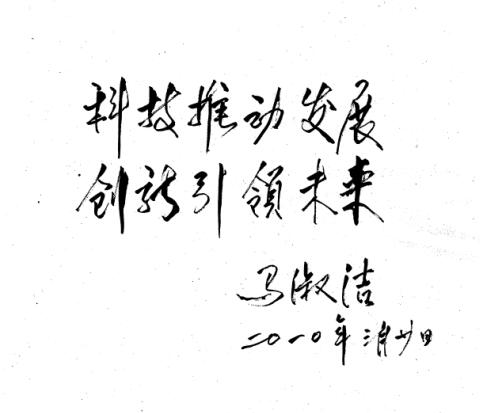 科技推动发展
创新引领未来
马淑洁
二〇一〇年三月廿日